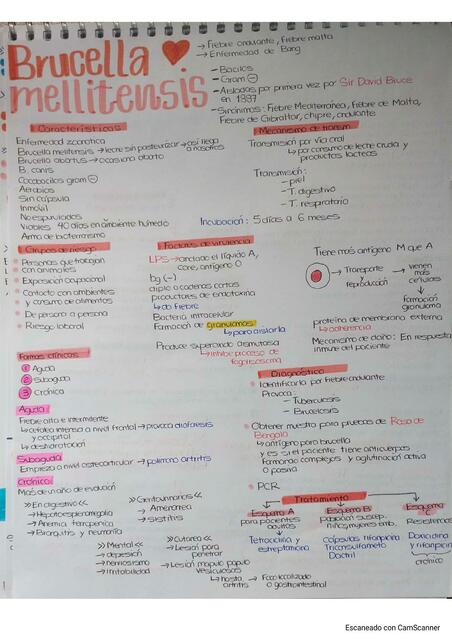 Brucella
mellitensis
→ Fiebre ondulante, fiebre malta
→ Enfermedad de Bang
- Bacilos
- Gram ⊖
- Aislados por primera vez por Sir David Bruce
en 1887
- Sinónimos: Fiebre Mediterránea, fiebre de Malta,
Fiebre de Gibraltar, chipre, ondulante
Características
Enfermedad zoonotica
Brucella melitensis → leche sin pasteurizar → así llega
a nosotros
Brucella abortus → ocasiona aborto
B. canis
Cocobacilos gram ⊖
Aerobios
Sin cápsula
Inmóvil
No esporulados
Viables 40 días en ambiente húmedo
Arma de bioterrorismo
Mecanismo de transm.
Transmisión por vía oral
↳ por consumo de leche cruda y
productos lacteos
Transmisión:
- piel
- T. digestivo
- T. respiratorio
Incubación: 5 días a 6 meses
Grupos de riesgo
Personas que trabajan
con animales
Exposición ocupacional
Contacto con ambientes
y consumo de alimentos
De persona a persona
Riesgo laboral
Factores de virulencia
LPS → anclado el lípido A,
Core, antígeno O
bg (-)
diplo o cadenas cortas
productores de endotoxina
↳ da fiebre
Bacteria intracelular
Formación de granulomas
↳ para aislarla
Produce superoxido dismutasa
↳ inhibe proceso de
fagolisosoma
Tiene más antígeno M que A
→ Transporte y
reproducción
→ vienen
más
células
↓
Formación
granuloma
proteína de membrana externa
↳ adherencia
Mecanismo de daño: En respuesta
inmune del paciente
Formas clínicas
1 Aguda
2 Subaguda
3 Crónica
Aguda:
Fiebre alta e intermitente
↳ cefalea intensa a nivel frontal → provoca diaforesis
y occipital
↳ deshidratación
Subaguda
Empieza a nivel osteoarticular → polimono artritis
Crónico:
Más de un año de evolución
>> En digestivo <<
→ Hepatoesplenomegalia
→ Anemia, ferropenica
→ Faringitis y neumonía
>> Genitourinarios <<
→ Amenorrea
→ Sistitis
>> Mental <<
→ depresión
→ nerviosismo
→ Irritabilidad
>> Cutanea <<
→ Lesión para
penetrar
→ Lesión maculo papulo
vesiculosas
↳ hasta
artritis
→ Foco localizado
o gastrointestinal
Diagnóstico
Identificarla por fiebre ondulante
Provoca:
- Tuberculosis
- Brucelosis
Obtener muestra para pruebas de Rosa de
Bengala
↳ antígeno para brucella
y es si el paciente tiene anticuerpos
Formaran complejos y aglutinación activa
o pasiva
PCR
Tratamiento
Esquema A
para pacientes
adultos
↓
Tetraciclina y
estreptomicina
Esquema B
Población suscep.
niños, mujeres emb.
↓
cápsulas rifampicina
Trimsulfameto
Bactril
Esquema
C
Resistentes
↓
Doxiciclina
y rifampicina
↓
crónico
Escaneado con CamScanner